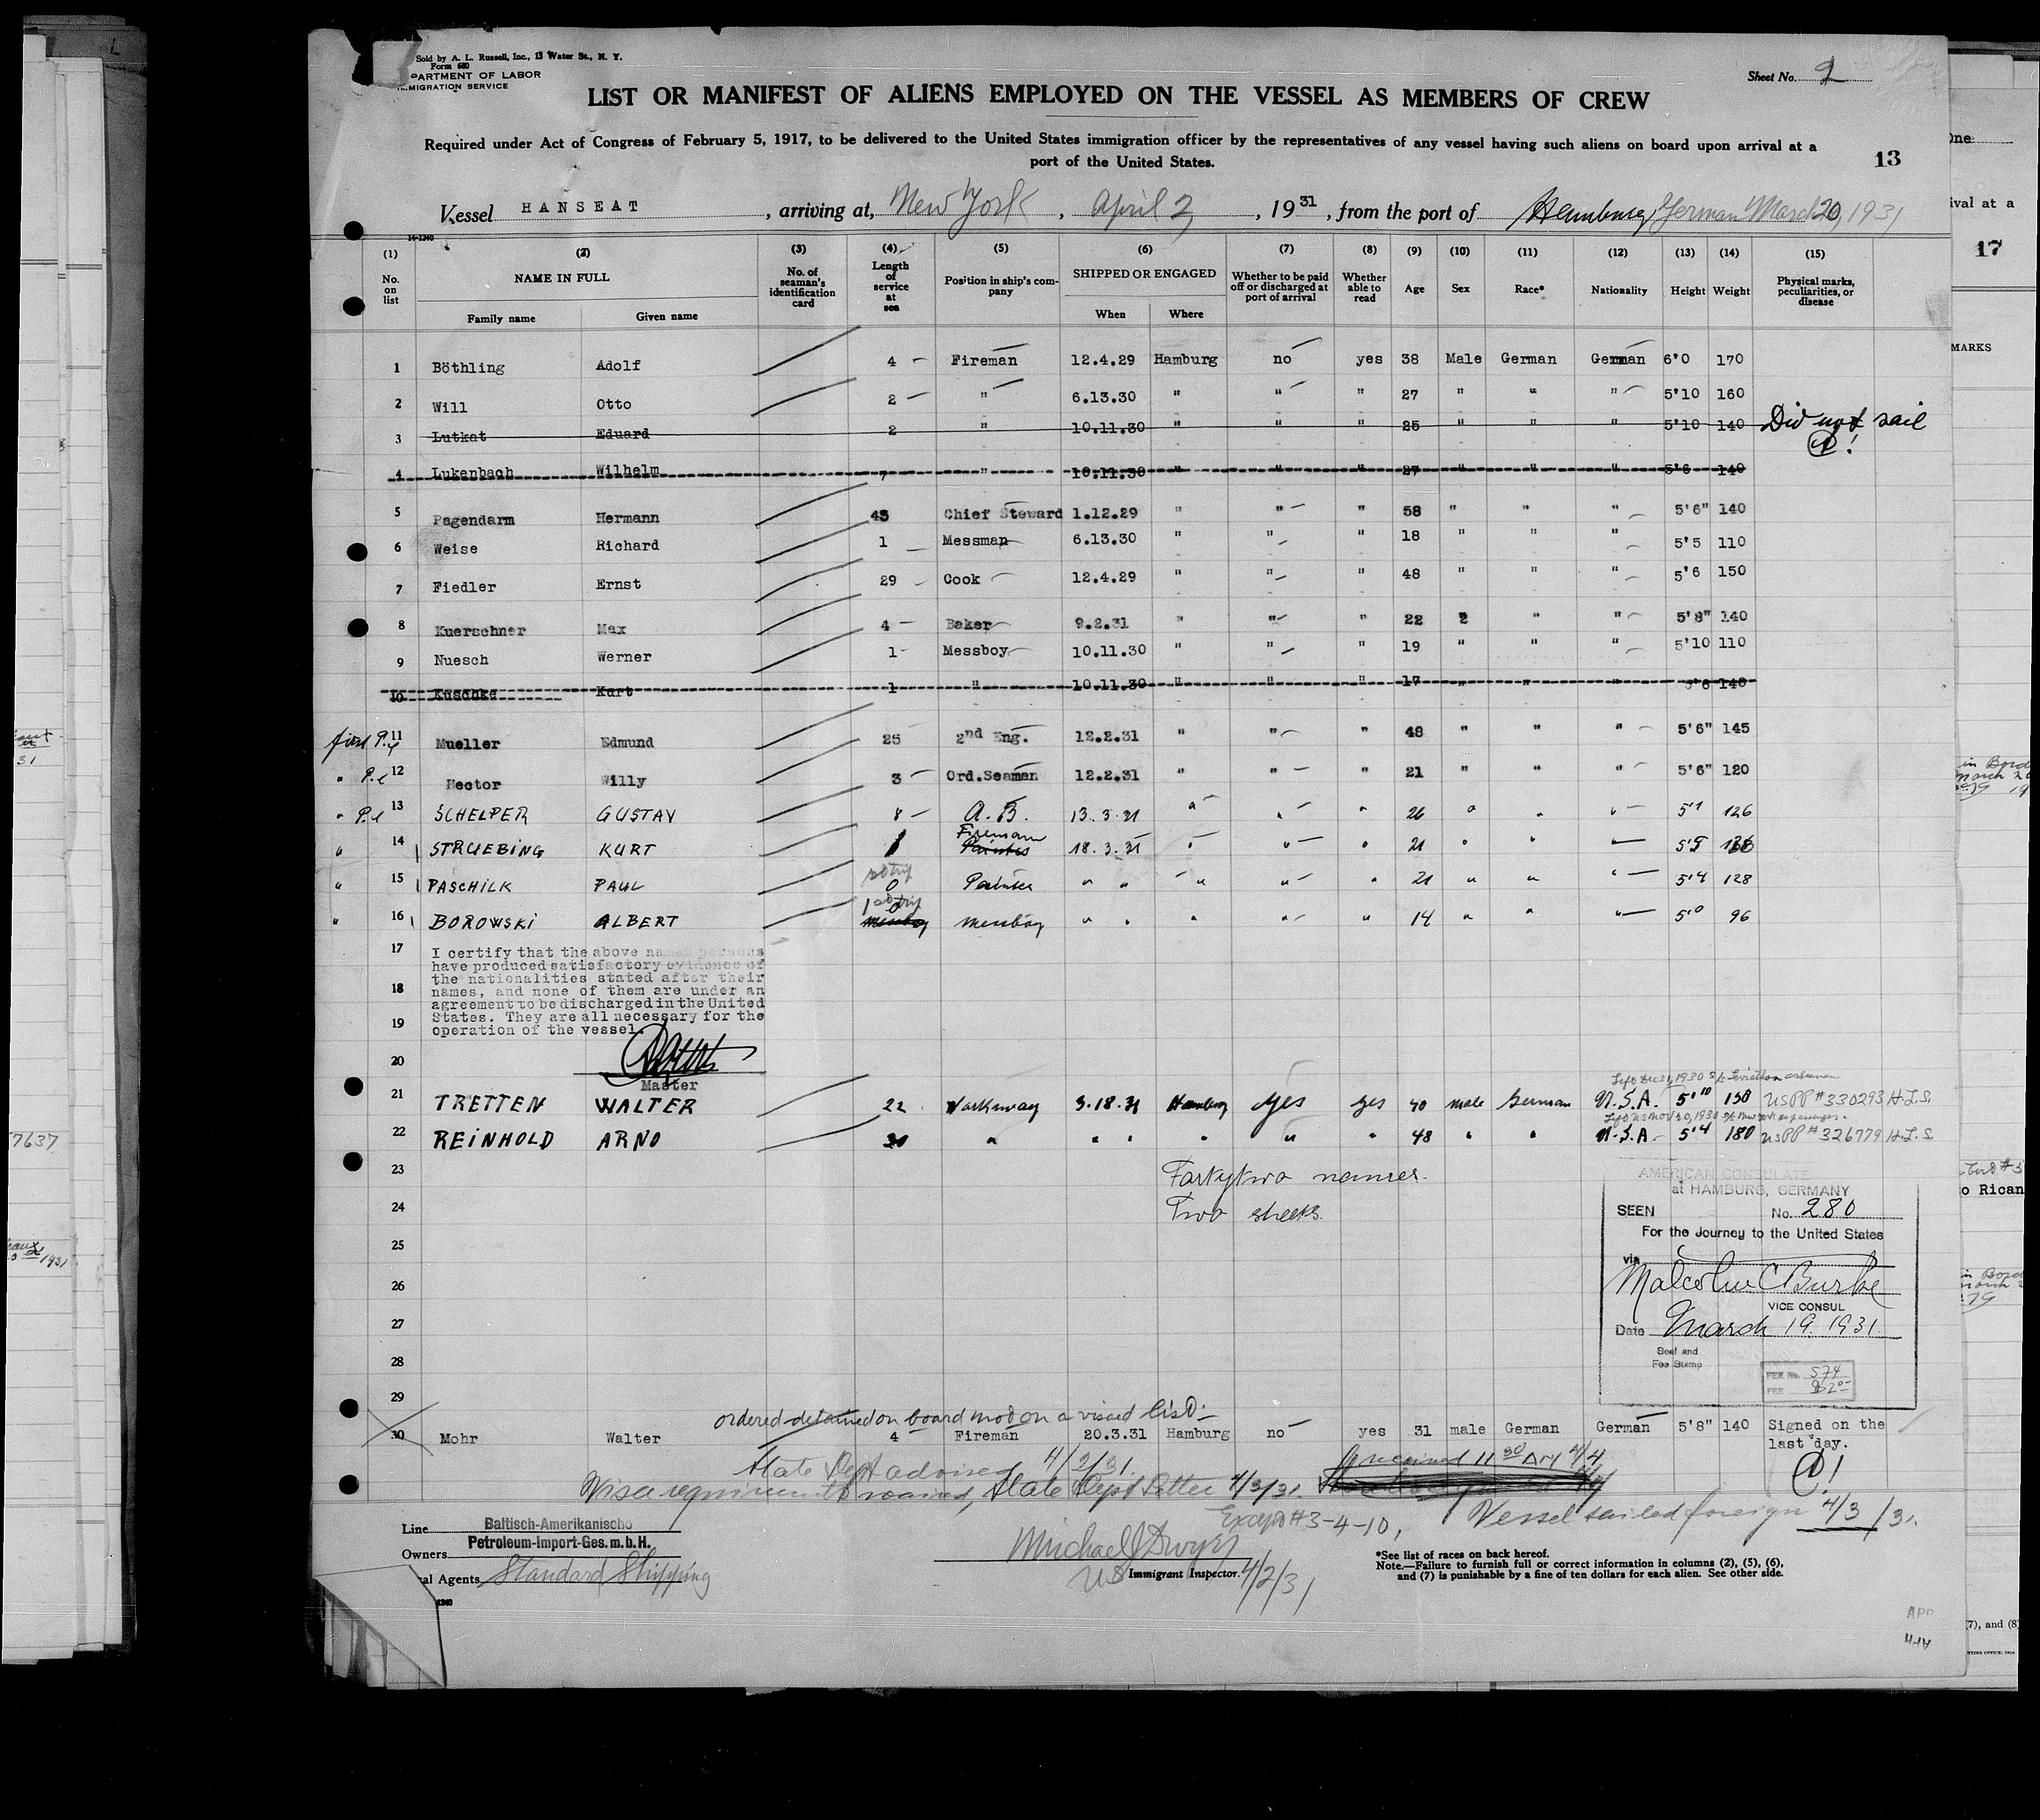 Sold by A. L. Russell, Inc., 13 Water St., N. Y.
Form 680
PARTMENT OF LABOR
MIGRATION SERVICE
Sheet No. 2
LIST OR MANIFEST OF ALIENS EMPLOYED ON THE VESSEL AS MEMBERS OF CREW
Required under Act of Congress of February 5, 1917, to be delivered to the United States immigration officer by the representatives of any vessel having such aliens on board upon arrival at a
port of the United States.
13
Vessel HANSEAT , arriving at, New York , April 2, , 1931 , from the port of Hamburg, Germany March 20, 1931
14-1240
(1) (2) (3) (4) (5) (6) (7) (8) (9) (10) (11) (12) (13) (14) (15)
No. on list NAME IN FULL No. of seaman's identification card Length of service at sea Position in ship's company SHIPPED OR ENGAGED Whether to be paid off or discharged at port of arrival Whether able to read Age Sex Race* Nationality Height Weight Physical marks, peculiarities, or disease
Family name Given name When Where
1 Böthling Adolf 4 Fireman 12.4.29 Hamburg no yes 38 Male German German 6'0 170
2 Will Otto 2 " 6.13.30 " " " 27 " " " 5'10 160
3 Lutkat Eduard 2 " 10.11.30 " " " 25 " " " 5'10 140 Did not sail
4 Lukenbach Wilhelm 7 " 10.11.30 " " " 27 " " " 5'6 140
5 Pagendarm Hermann 43 Chief Steward 1.12.29 " " " 58 " " " 5'6" 140
6 Weise Richard 1 Messman 6.13.30 " " " 18 " " " 5'5 110
7 Fiedler Ernst 29 Cook 12.4.29 " " " 48 " " " 5'6 150
8 Kuerschner Max 4 Baker 9.2.31 " " " 22 " " " 5'8" 140
9 Nuesch Werner 1 Messboy 10.11.30 " " " 19 " " " 5'10 110
10 Kuschke Kurt 1 " 10.11.30 " " " 17 " " " 5'6 140
first P.y 11 Mueller Edmund 25 2nd Eng. 12.2.31 " " " 48 " " " 5'6" 145
" 12 Hector Willy 3 Ord.Seaman 12.2.31 " " " 21 " " " 5'6" 120
" 13 SCHELPER GUSTAV 8 A.B. 13.3.31 " " " 26 " " " 126
" 14 STRUEBING KURT 1 Fireman 18.3.31 " " " 21 " " "
" 15 PASCHILK PAUL 0 Painter " " " " " 21 " " " 5'4 128
" 16 BOROWSKI ALBERT messboy " " " " " 14 " " " 5'0 96
17 I certify that the above named persons
have produced satisfactory evidence of
the nationalities stated after their
18 names, and none of them are under an
agreement to be discharged in the United
19 States. They are all necessary for the
operation of the vessel.
20
Master
Left Dec 31, 1930 S/S Leviathan as seaman
21 TRETTEN WALTER 22 Workaway 3.18.31 Hamburg yes yes 40 male German U.S.A. 5'10 US PP # 330293 H.L.S.
Left US Nov 20, 1930 S/S New York as passenger.
22 REINHOLD ARNO 30 " " " " " " 48 " " U.S.A. 5'4 180 US PP # 326779 H.L.S.
23 Fortytwo names.
24 Two sheets.
AMERICAN CONSULATE
at HAMBURG, GERMANY
SEEN No. 280
For the Journey to the United States
via
Malcolm C Burke
VICE CONSUL
Date March 19. 1931
Seal and
Fee Stamp
FEE No. 574
FEE $2.00
25
26
27
28
29
ordered detained on board not on a visaed list
30 Mohr Walter 4 Fireman 20.3.31 Hamburg no yes 31 male German German 5'8" 140 Signed on the
last day.
State Dept advised 4/2/31. received 11 30 AM 4/4
Visa requirements waived, State Dept Letter 4/3/31.
Except # 3-4-10, Vessel sailed foreign 4/3/31.
Line Baltisch-Amerikanische
Owners Petroleum-Import-Ges.m.b.H.
al Agents Standard Shipping
Michael J Dwyer
US Immigrant Inspector. 4/2/31
*See list of races on back hereof.
Note.—Failure to furnish full or correct information in columns (2), (5), (6),
and (7) is punishable by a fine of ten dollars for each alien. See other side.
One
ival at a
17
MARKS
7637
1931
o Rican
(7), and (8)